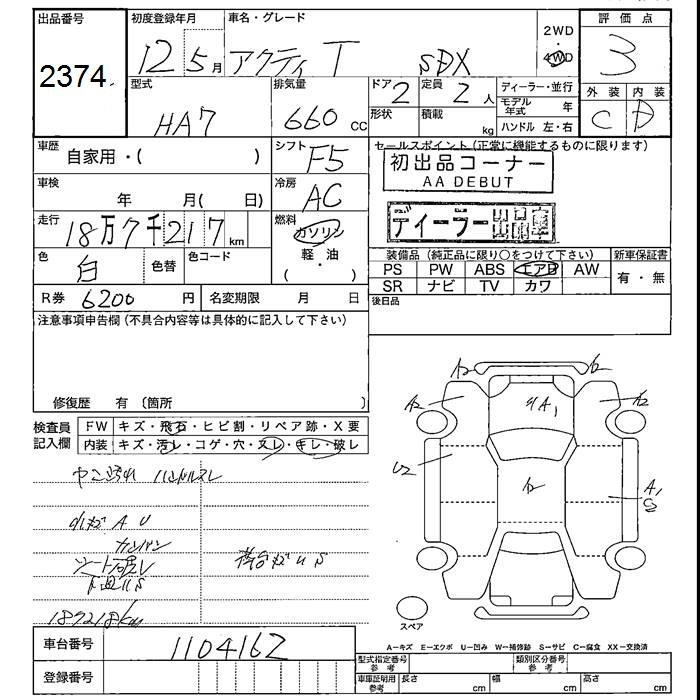 出品番号
2374
初度登録年月
12 5月
車名・グレード
アクティ T SDX
2WD
4WD
評価点
3
外装 内装
C D
型式
HA7
排気量
660 CC
ドア
2
形状
定員
2 人
積載
kg
ディーラー・並行
モデル年式 年
ハンドル 左・右
車歴
自家用・( )
シフト
F5
セールスポイント(正常に機能するものに限ります)
初出品コーナー
AA DEBUT
ディーラー出品車
車検
年 月( 日)
冷房
AC
走行
18万7千217 km
燃料
ガソリン
軽・油
( ・ )
色
白
色替
色コード
装備品(純正品に限り○をつけて下さい)
新車保証書
PS PW ABS エアB AW
SR ナビ TV カワ
有・無
R券 6200 円
名変期限 月 日
後日品
注意事項申告欄(不具合内容等は具体的に記入して下さい)
修復歴 有 〔箇所 〕
検査員記入欄
FW キズ・飛石・ヒビ割・リペア跡・X要
内装 キズ・汚レ・コゲ・穴・スレ・キレ・破レ
ハンドルスレ
小キズ A U
187218km
A2 A2
A2 A2
A1
U2
A2
A1
C2
スペア
A－キズ E－エクボ U－凹み W－補修跡 S－サビ C－腐食 XX－交換済
車台番号
1104162
登録番号
型式指定番号 参考
類別区分番号 参考
車庫証明用 参考
長さ cm
幅 cm
高さ cm